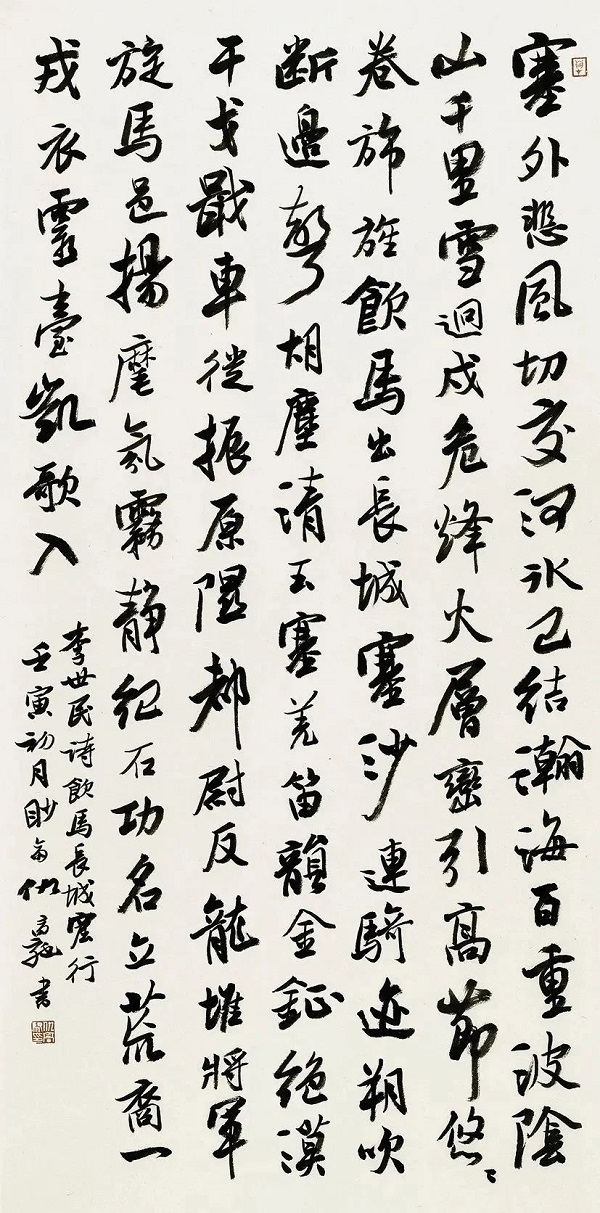 塞外悲風切交河氷已結瀚海百重波陰
山千里雪迥戍危烽火層巒引高節悠〻
卷旆旌飲馬出長城塞沙連騎迹朔吹
断邊聲胡塵清玉塞羌笛韻金鉦絶漠
干戈戢車徒振原隰都尉反龍堆將軍
旋馬邑揚麾氛霧静紀石功名立荒裔一
戎衣靈臺凱歌入
李世民詩飲馬長城窟行
壬寅初月
書